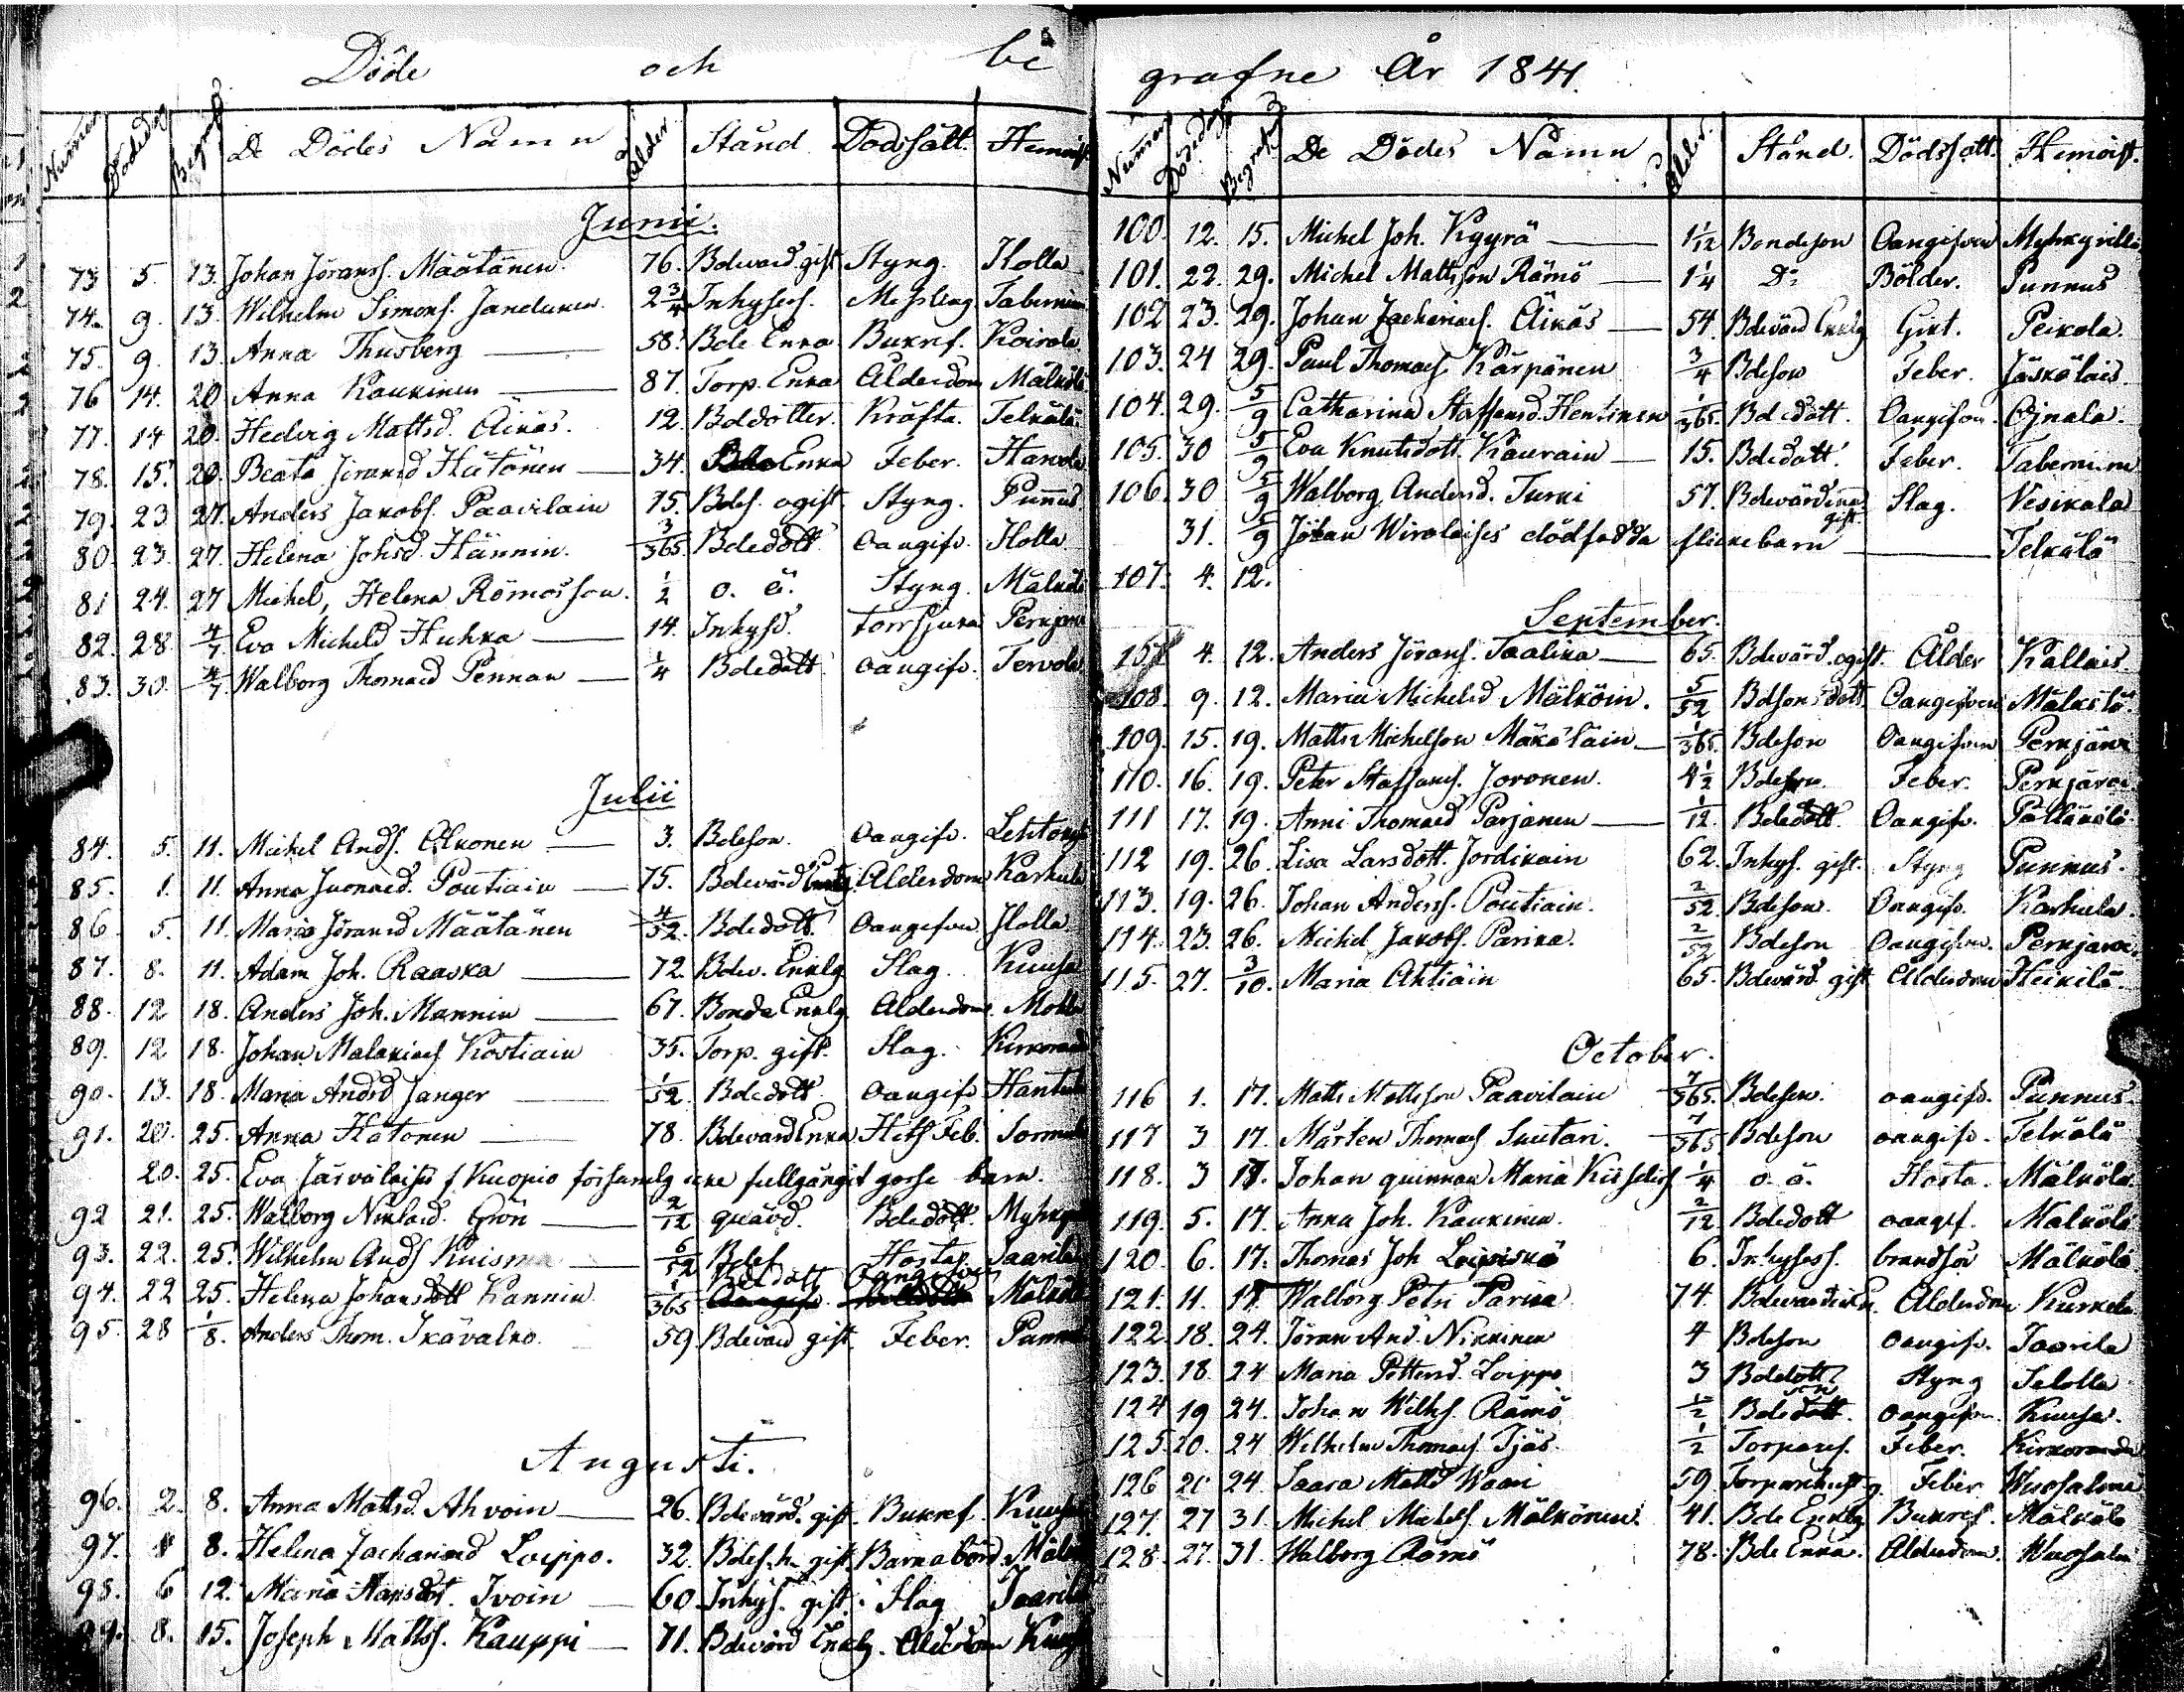 Döde och be
Nummer Dödsdag Begrafn: De Dödes Namn Ålder Stånd Dödssätt. Hemort.
Junii.
73 5. 13. Johan Jöranss. Määtänen. 76. Bdevärd gift Styng. Ilolla
74. 9. 13. Wilhelm Simons. Jandunen. 2 3/4 Inhysess. Messling Taberniem
75. 9. 13. Anna Thusberg 58. Bde Enka Bukref. Koirola
76 14. 20 Anna Kaukinen 87. Torp. Enka Ålderdom Mälkölä
77. 14 20. Hedvig Mattsd. Äikäs. 12. Bdedotter. Kräfta. Telkälä.
78. 15. 20. Beata Jöransd Hätönen 34. Enka Feber. Hanola
79. 23 27. Anders Jakobs. Paavilain 75. Bdes. ogift Styng. Punnus.
80. 23. 27. Helena Johsd. Hännin. 3/365 Bdedott. Oangifv. Ilolla
81 24. 27 Michel, Helena Römös son. 1/2 o. ä. Styng. Mälkölä
82. 28. 4/7 Eva Michelsd Huhka 14. Inhysd. Torrsjuka Perkjärvi
83. 30. 4/7 Walborg Thomasd Pennan 1/4 Bdedott oangifv. Tervola
Julii
84. 5. 11. Michel Ands. Alkonen 3. Bdeson. Oangifv.
85. 1. 11. Anna Poutiain 75. Bdevärd Enka Ålderdom Karhula
86. 5. 11. Maria Jöransd Määtänen 4/52. Bdedott. Oangifven Ilolla
87. 8. 11. Adam Joh. Raaska 72. Bdev. Enklg Slag. Kuusa
88. 12 18. Anders Joh. Mannin 67. Bonde Enklg Ålderdom.
89. 12 18. Johan Malakias Kostiain 35. Torp. gift. Slag. Kirkoranda
90. 13. 18. Maria Andrsd Janger 1/52. Bdedott. Oangifv Hantula
91. 20. 25. Anna Hätönen 78. Bdevärd Enka Hets Feb. Sormula
20. 25. Eva Järväläises f. Kuopio församlg icke fullgångit gosse barn.
92 21. 25. Walborg Niklasd. Grön 2/12 qvävd. Bdedott. Myhkyri
93. 22. 25. Wilhelm Ands Kuisma 6/52 Bdes. Hosta. Saarila
94. 22 25. Helena Johansdott Kannin 1/365 Bdedott Oangifven Mälkölä
95. 28 1/8. Anders Thom. Ikävalko. 59. Bdevärd gift Feber. Punnus
Augusti.
96. 2. 8. Anna Mattsd. Ahvoin 26. Bdevärd. gift. Bukref. Kuusa
97. 4 8. Helena Zachariasd Loippo. 32. Bdes. h. gift. Barnabörd Mälkölä
98. 6 12. Maria Hansdot. Ivoin 60. Inhys. gift. Slag Saarila
99. 8. 15. Joseph Mattss. Kauppi 71. Bdevärd Enklg. Ålderdom Kuusa
grafne År 1841.
Nummer Dödsdag Begrafn: De Dödes Namn Ålder. Stånd. Dödssätt. Hemort.
100. 12. 15. Michel Joh. Kyyrä 1 1/12 Bondeson Oangifven Myhkyrilä
101. 22. 29. Michel Mattsson Römö 1 1/4 Do Bölder. Punnus
102 23. 29. Johan Zacharias. Äikäs 54. Bdevärd Enklg Gikt. Peikola.
103. 24 29. Paul Thomas. Kärpänen 3/4 Bdeson Feber. Jäskäläis.
104. 29. 5/9 Catharina Staffansd. Hentinen 1/365. Bdedott. Oangifven. Ojnala.
105. 30 5/9 Eva Knutsdott. Kaurain 15. Bdedott. Feber. Taberniem
106. 30 5/9 Walborg Andersd. Turki 57. Bdevärdinna gift. Slag. Vesikala
31. 5/9 Johan Wirolaises dödfödda flickebarn Telkälä
107. 4. 12.
September.
157 4. 12. Anders Jörans. Taalika 65. Bdevärd. ogift. Ålder Kallais.
108. 9. 12. Maria Michelsd Mälköin. 5/52 Bdesons dott. Oangifven Mälkölä.
109. 15. 19. Matts Michelson Mäköläin 1/365. Bdeson Oangifven Perkjärvi
110. 16. 19. Peter Staffans. Joronen. 4 1/2 Bdeson. Feber. Perkjärvi
111 17. 19. Anni Thomasd Parjanen 1/12. Bdedott. Oangifv. Pällänölä
112 19. 26. Lisa Larsdott. Jordikain 62. Inhys. gift. Styng Punnus.
113. 19. 26. Johan Anderss. Poutiain. 2/52. Bdeson. Oangifv. Karhula.
114. 23. 26. Michel Jakobs. Parika. 2/52 Bdeson Oangifven. Perkjärvi.
115. 27. 3/10. Maria Ahtiain 65. Bdevärd. gift Ålderdom Heikilä.
October.
116 1. 17. Matts Mattsson Paavilain 7/365. Bdeson. oangifv. Punnus.
117 3 17. Mårten Thomas Suutari. 7/365 Bdeson oangifv. Telkälä
118. 3 17. Johan quinnan Maria 1/4 o. ä. Hosta. Mälkölä
119. 5. 17. Anna Joh. Kaukinen. 2/12. Bdedott oangif. Mälkölä
120. 6. 17. Thomas Joh 6. Inhysess. Mälkölä
121. 11. 17 Walborg Petri Parika 74. Ålderdom Kurkela
122. 18. 24. Jöran And. Nikkinen 4 Bdeson oangifv. Saarila
123. 18. 24 Maria Pettersd. Loippo 3 Bdedott Styng Ilolla
124 19 24. Johan Wilhs. Römö 1/2 Bdeson. oangifven. Kuusa.
125. 20. 24 Wilhelm Thomas. Tjäs. 1/2 Torpares. Feber. Kirkoranda
126 20 24. Saara Mattsd Waari 59 Feber Wuosalmi
127. 27 31. Michel Michels. Mälkönen. 41. Bde Enklg Bukref. Mälkölä
128. 27. 31. Walborg Römö 78. Bde Enka. Ålderdom. Wuosalmi